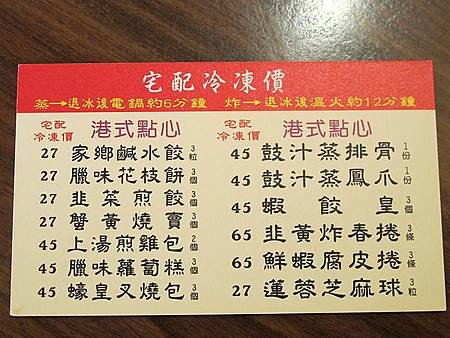 宅配冷凍價
蒸→退冰後電鍋約6分鐘 炸→退冰後溫火約12分鐘
宅配冷凍價 港式點心
27 家鄉鹹水餃 3粒
27 臘味花枝餅 3個
27 韭菜煎餃 3個
27 蟹黃燒賣 3個
45 上湯煎雞包 2個
45 臘味蘿蔔糕 3個
45 蠔皇叉燒包 3個
宅配冷凍價 港式點心
45 鼓汁蒸排骨 1份
45 鼓汁蒸鳳爪 1份
45 蝦餃皇 3個
65 韭黃炸春捲 3條
65 鮮蝦腐皮捲 3條
27 蓮蓉芝麻球 3粒